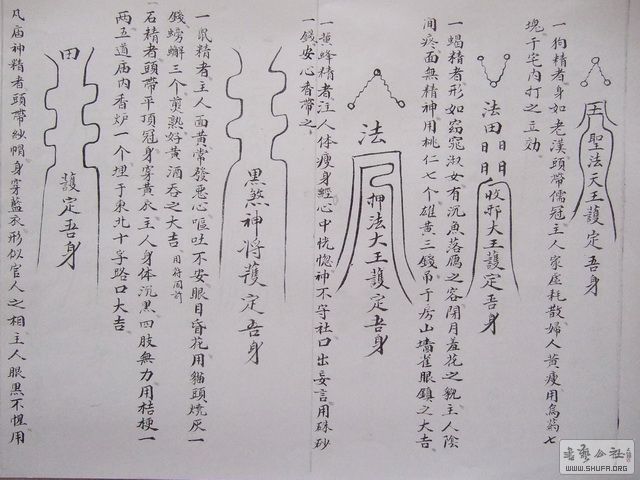 聖法天王護定吾身
一狗精者身如老漢頭帶儒冠主人家虛耗散婦人黃瘦用烏药七
塊于宅內打之立効
法田日日日日收邪大王護定吾身
一蝎精者形如窈窕淑女有沉魚落鴈之容閉月羞花之貌主人陰
間疼面無精神用桃仁七个雄黃三錢吊于房山墻雀眼鎮之大吉
法押法大王護定吾身
一黃蜂精者注人体瘦身輕心中恍惚神不守社口出妄言用硃砂
一錢安心香帶之
黑煞神将護定吾身
一鼠精者主人面黃常發惡心嘔吐不安眼目昏花用貓頭燒灰一
錢螃蠏三个煎熟好黃酒吞之大吉用符同前
石精者頭帶平頂冠身穿黃衣主人身体沉黑四肢無力用桔梗一
兩五道庙内香炉一个埋于東北十字路口大吉
田護定吾身
凡庙神精者頭帶紗帽身穿藍衣形似官人之相主人眼黑不惺用
書藝公社
WWW.SHUFA.ORG